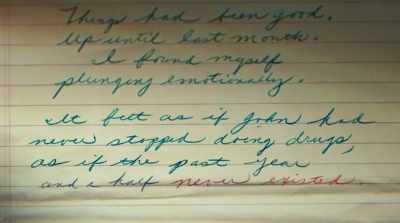 Things had been good.
Up until last month.
I found myself
plunging emotionally.
It felt as if John had
never stopped doing drugs,
as if the past year
and a half never existed.